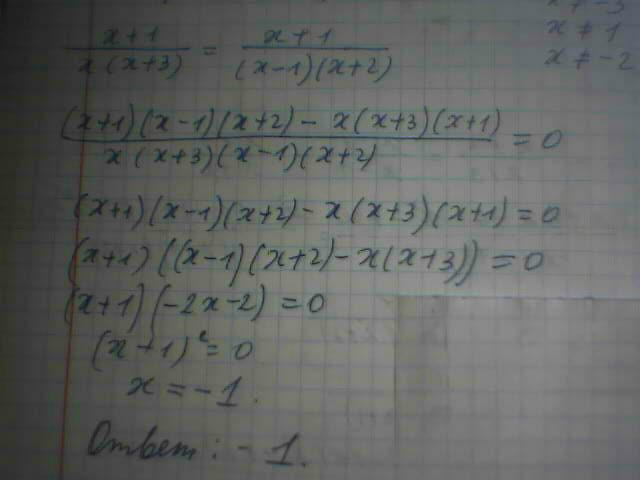 x ≠ -3
x ≠ 1
x ≠ -2
(x+1)/(x(x+3)) = (x+1)/((x-1)(x+2))
((x+1)(x-1)(x+2) - x(x+3)(x+1))/(x(x+3)(x-1)(x+2)) = 0
(x+1)(x-1)(x+2) - x(x+3)(x+1) = 0
(x+1)((x-1)(x+2) - x(x+3)) = 0
(x+1)(-2x-2) = 0
(x+1)² = 0
x = -1.
Ответ: -1.